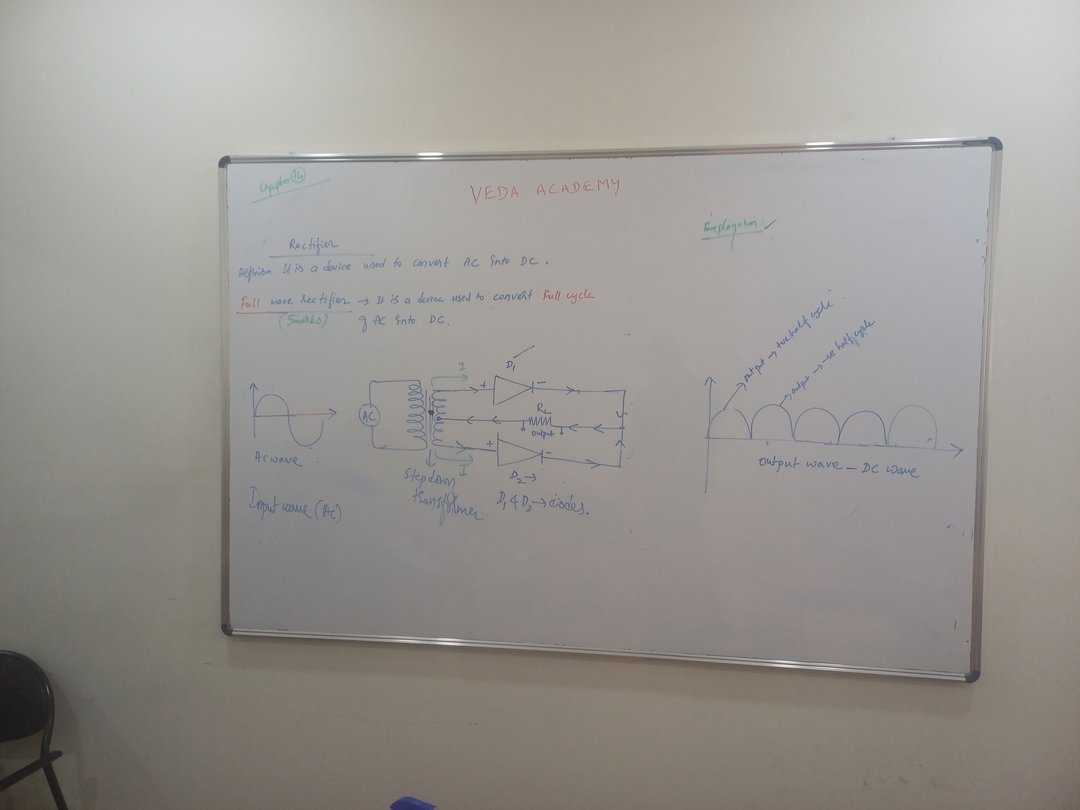 Chapter 14
VEDA ACADEMY
Explanation:
Rectifier
Definition It is a device used to convert AC into DC.
Full wave rectifier → It is a device used to convert Full cycle
(5marks) of AC into DC.
I
D1
+ -
AC
RL
output
+ -
I
D2 →
AC wave
Stepdown
transformer
D1 & D2 → diodes.
Input wave (AC)
output → +ve half cycle
output → -ve half cycle
Output wave - DC wave